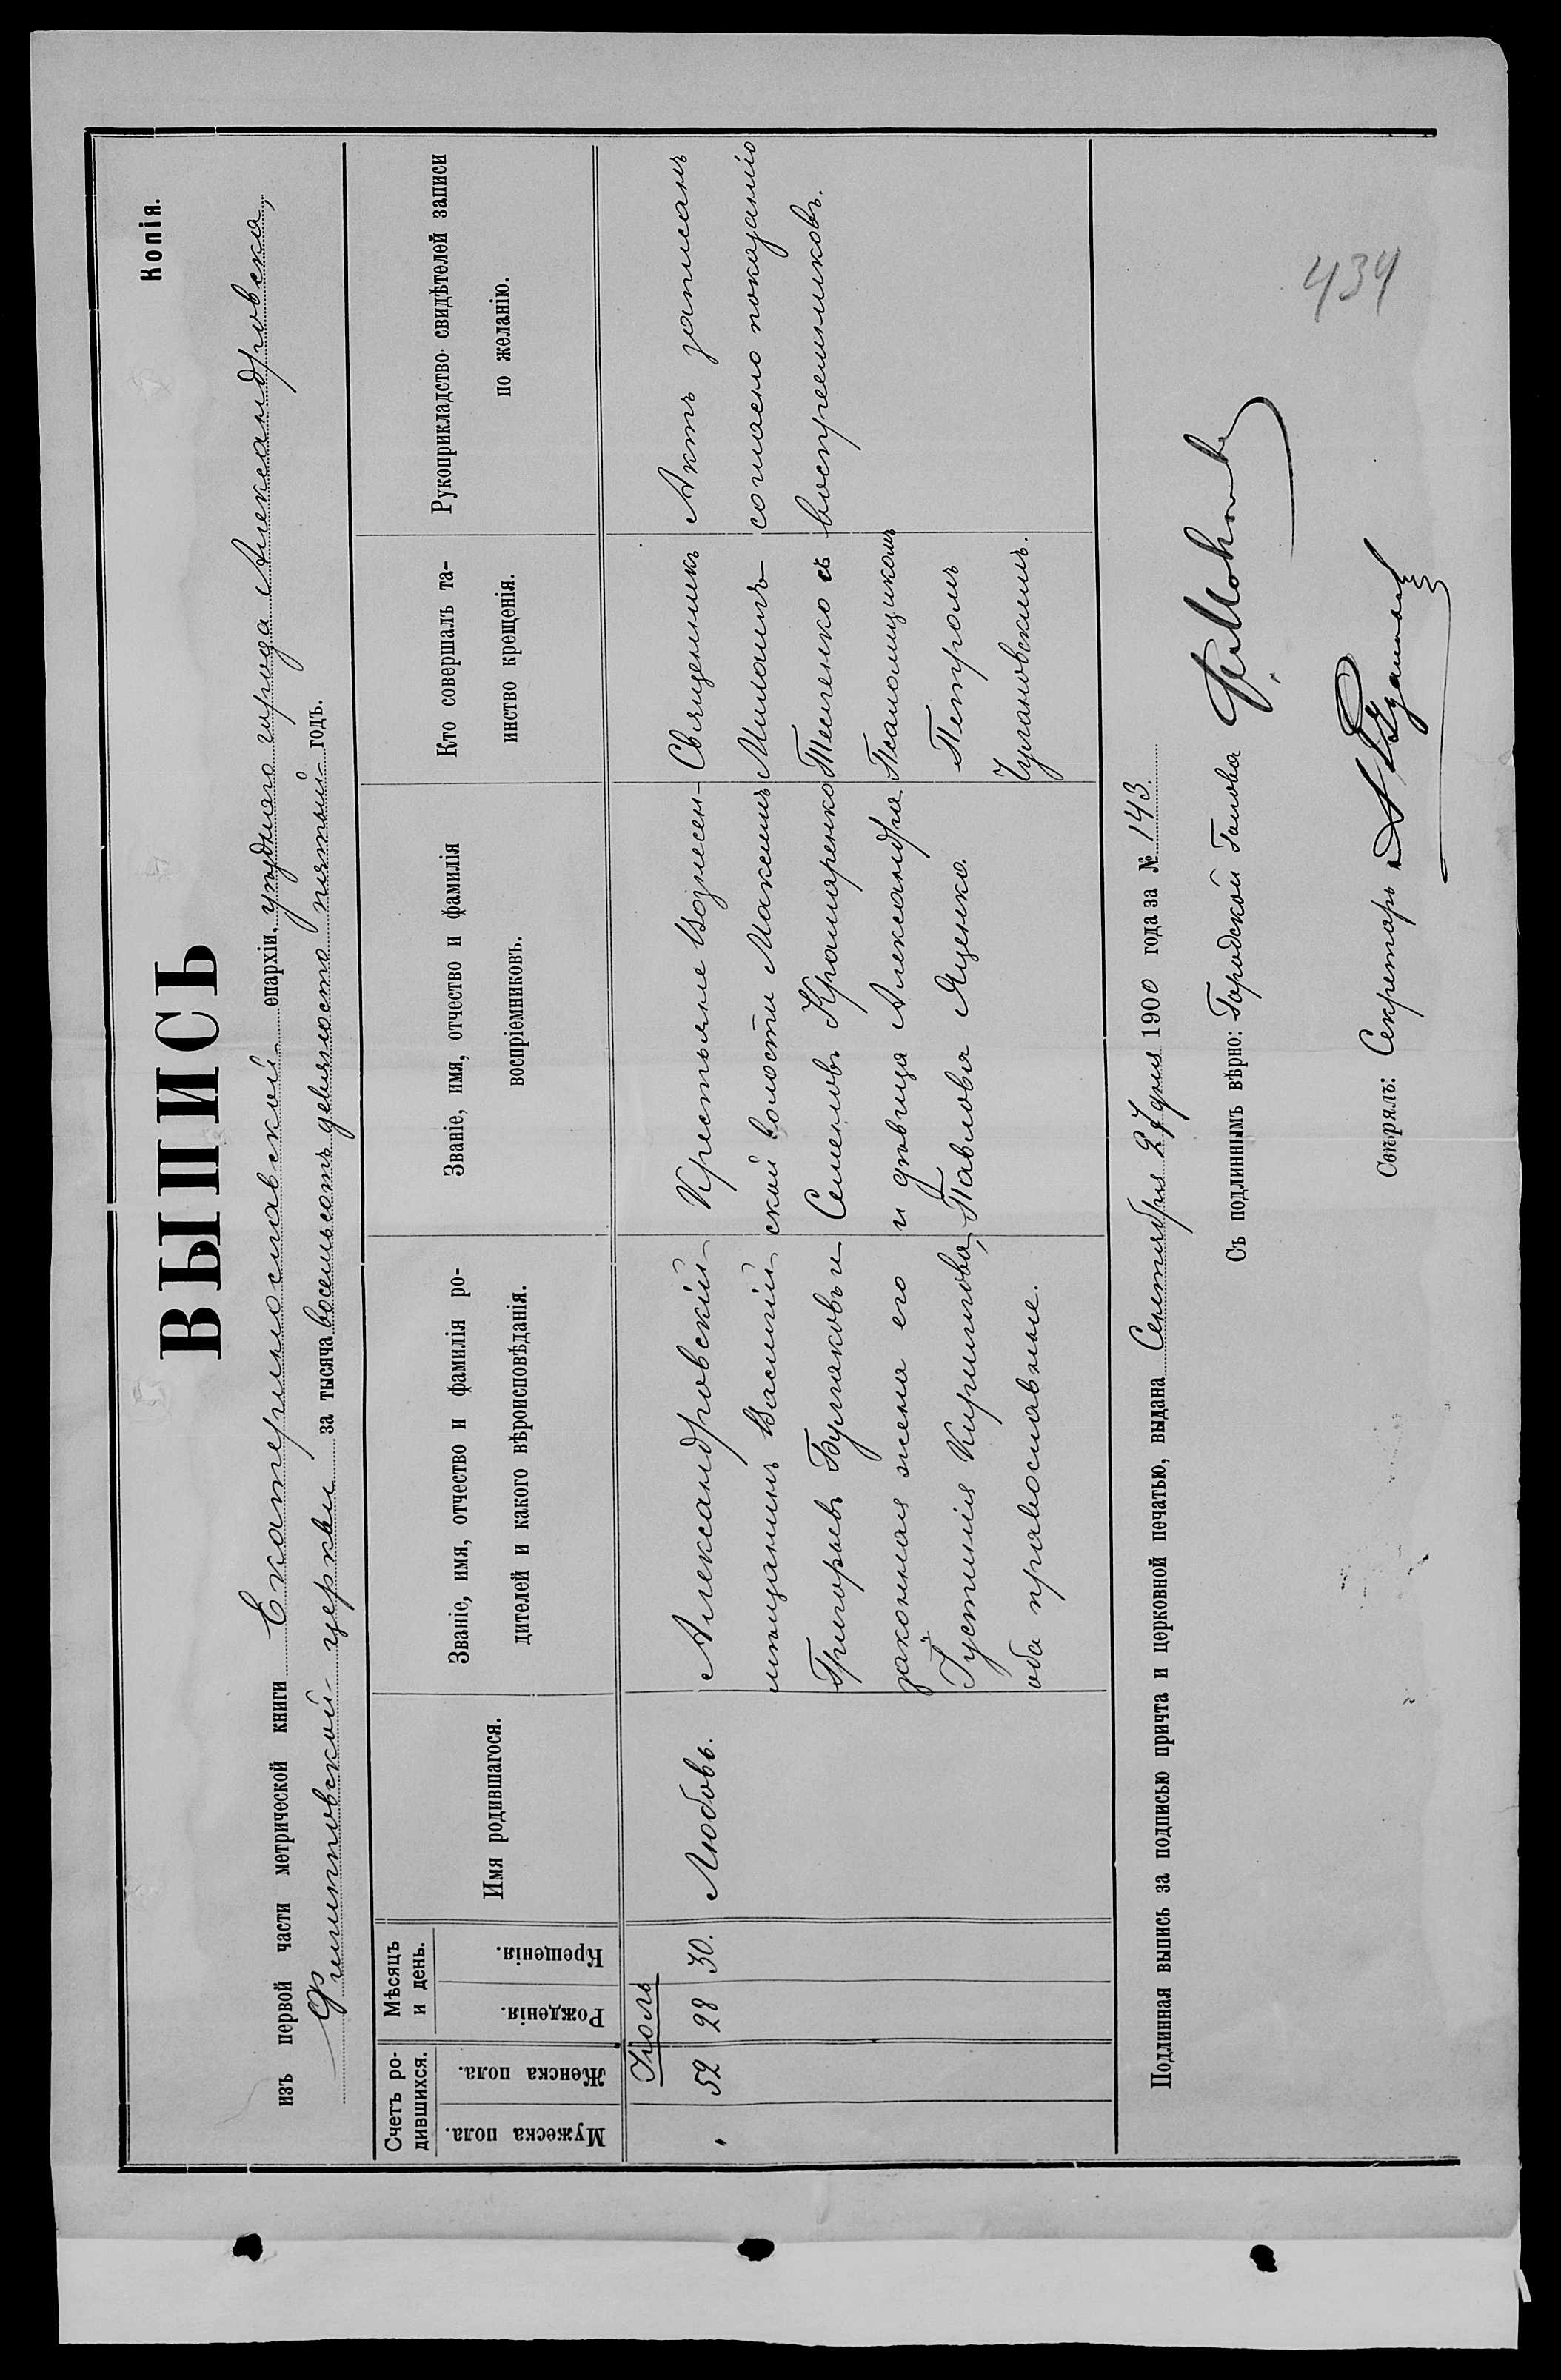 Копія.
ВЫПИСЬ
изъ первой части метрической книги Екатеринославской епархіи, уѣзднаго города Александровска,
Филипповской церкви за тысяча восемьсотъ девяносто пятый годъ.
Счетъ ро-
дившихся.
Мужеска пола.
Женска пола.
Мѣсяцъ
и день.
Рожденія.
Крещенія.
Имя родившагося.
Званіе, имя, отчество и фамилія ро-
дителей и какого вѣроисповѣданія.
Званіе, имя, отчество и фамилія
воспріемниковъ.
Кто совершалъ та-
инство крещенія.
Рукоприкладство свидѣтелей записи
по желанію.
Іюль
" 52 28 30.
Любовь.
Александровскій
мѣщанинъ Василій
Григорьевъ Булгаковъ и
законная жена его
Іустинія Кириллова,
оба православные.
Крестьяне Вознесен-
ской волости Максимъ
Семеновъ Крамаренко
и дѣвица Александра
Павлова Яценко.
Священникъ
Михаилъ
Тесленко съ
Псаломщикомъ
Петромъ
Чугановскимъ.
Актъ записанъ
согласно показанію
воспреемниковъ.
Подлинная выпись за подписью причта и церковной печатью, выдана Сентября 27 дня 1900 года за № 143.
Съ подлиннымъ вѣрно: Городской Голова
Свѣрялъ: Секретарь
434